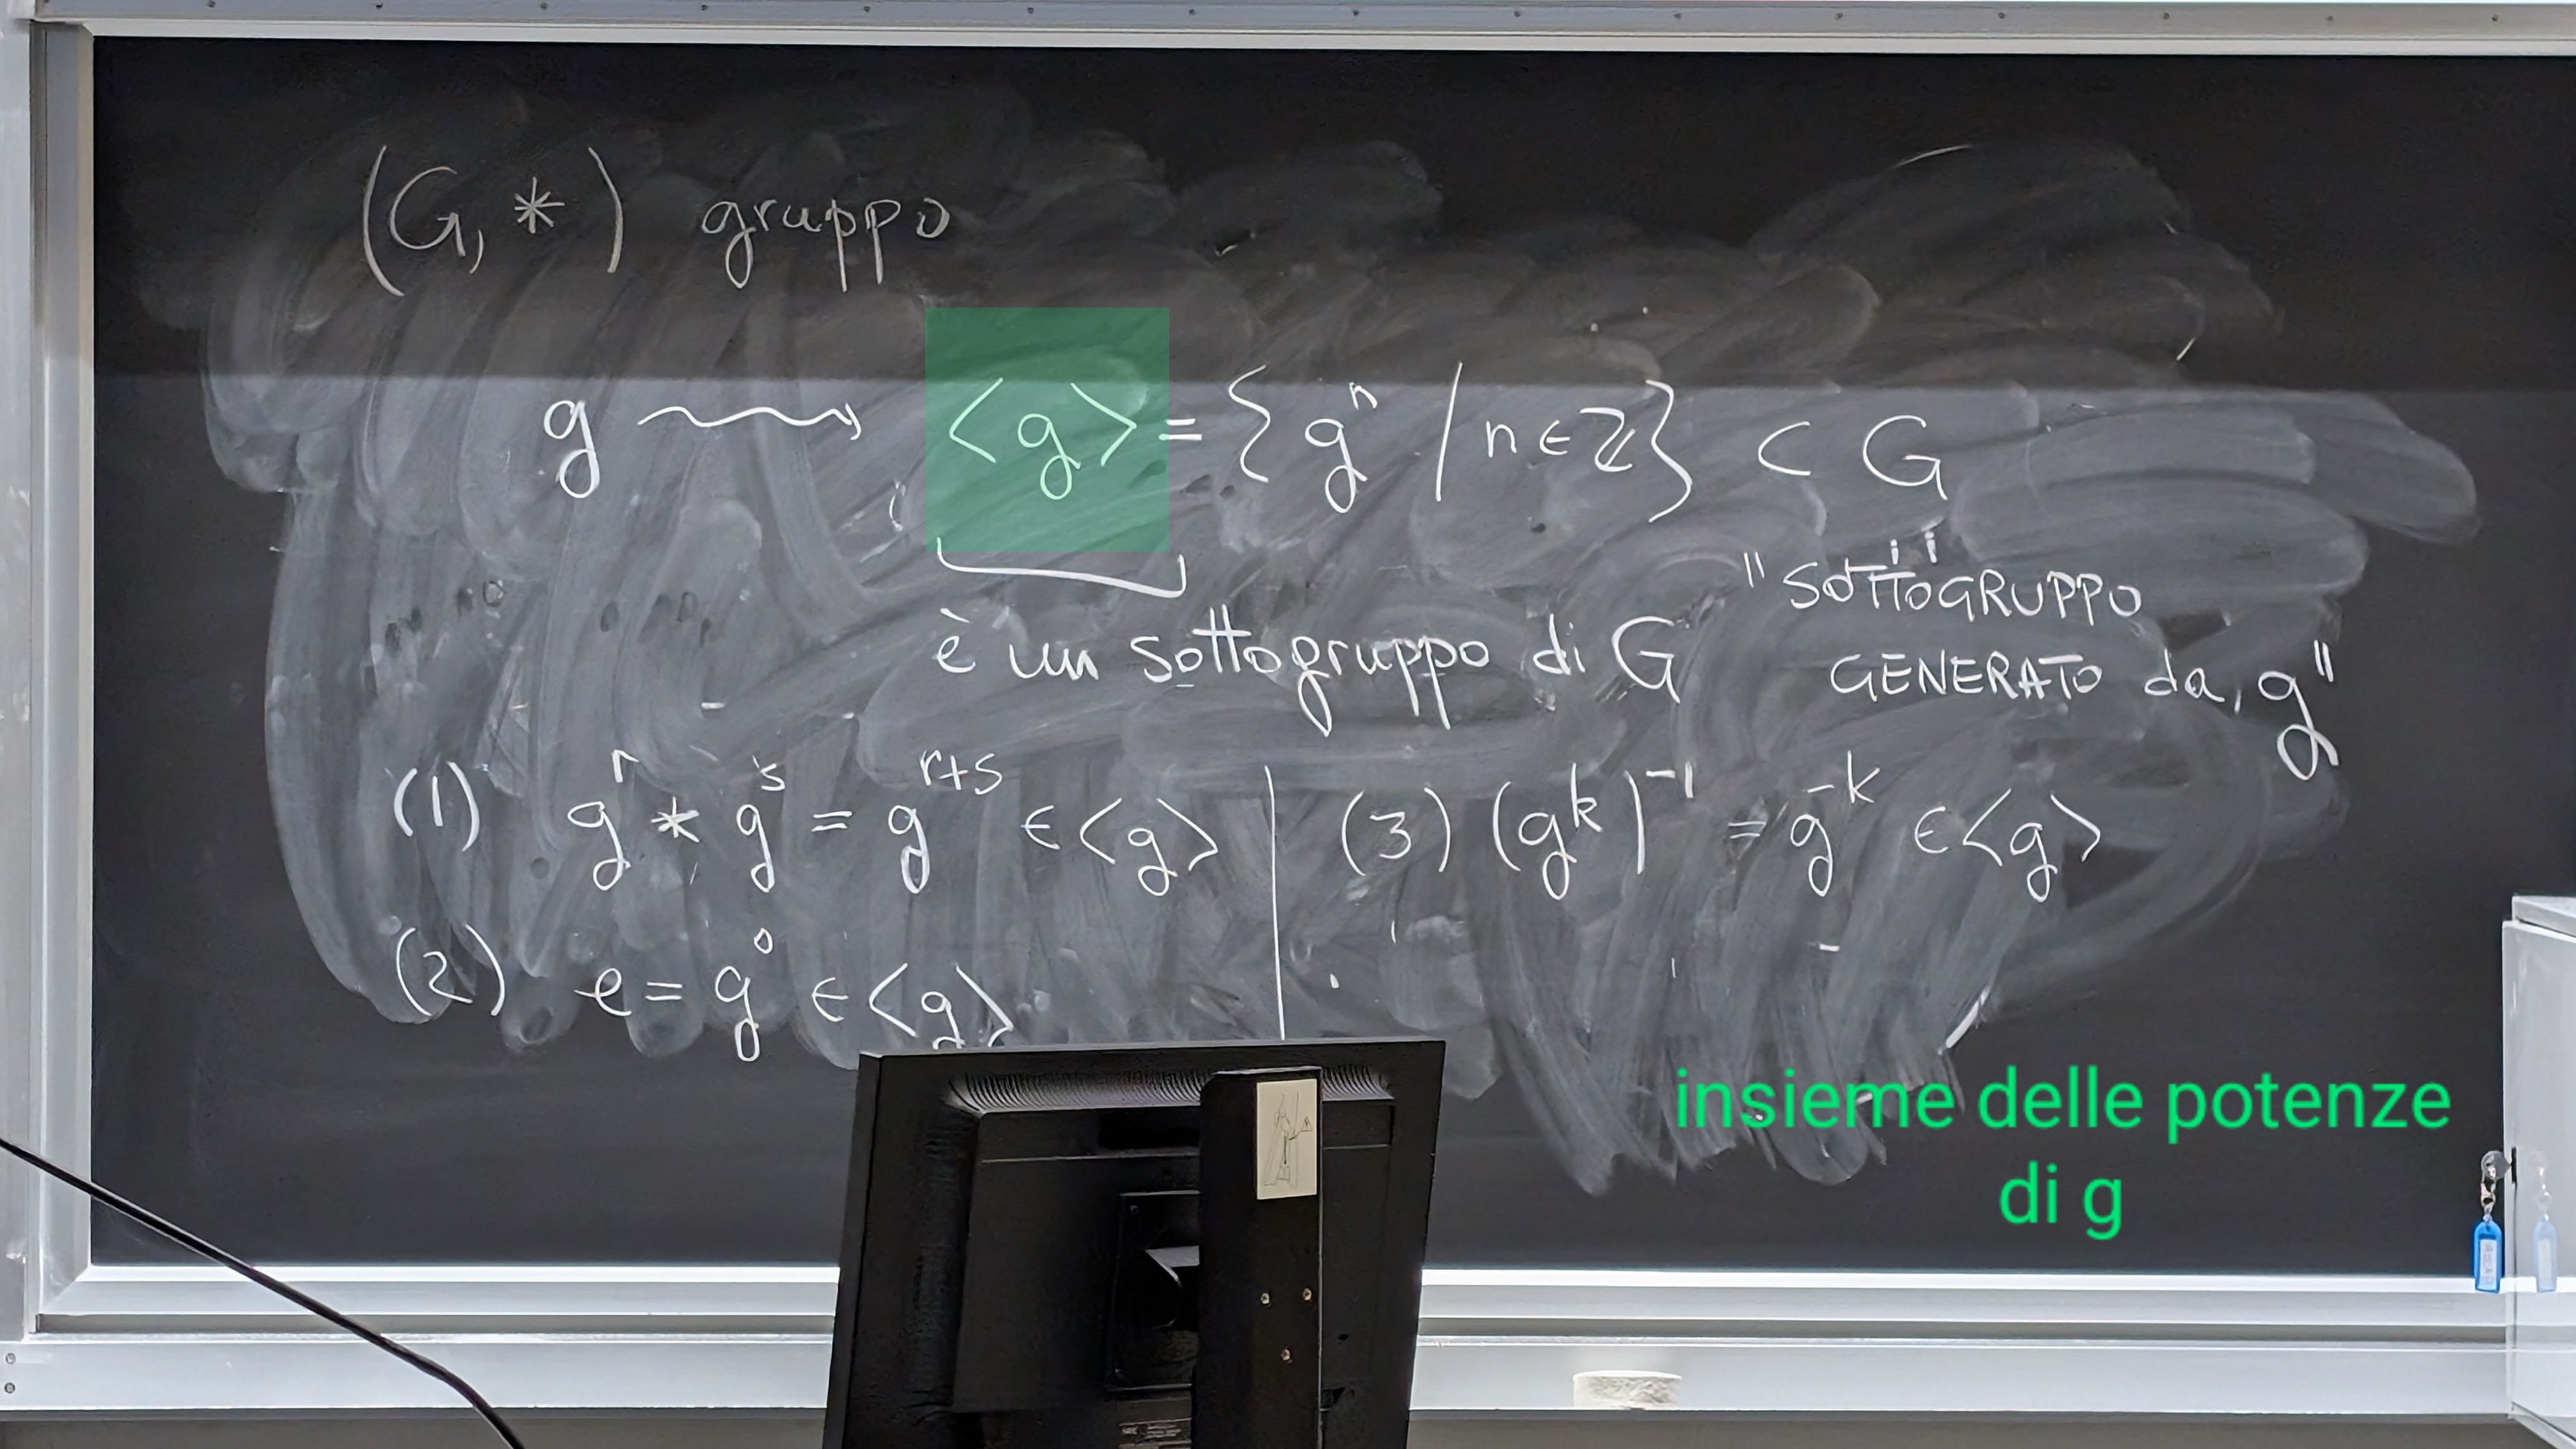 (G, *) gruppo
g ⟿ <g> = { gⁿ / n ∈ ℤ } ⊂ G
è un sottogruppo di G
"SOTTOGRUPPO
GENERATO da g"
(1) gʳ * gˢ = gʳ⁺ˢ ∈ <g>
(2) e = g⁰ ∈ <g>
(3) (gᵏ)⁻¹ = g⁻ᵏ ∈ <g>
insieme delle potenze
di g